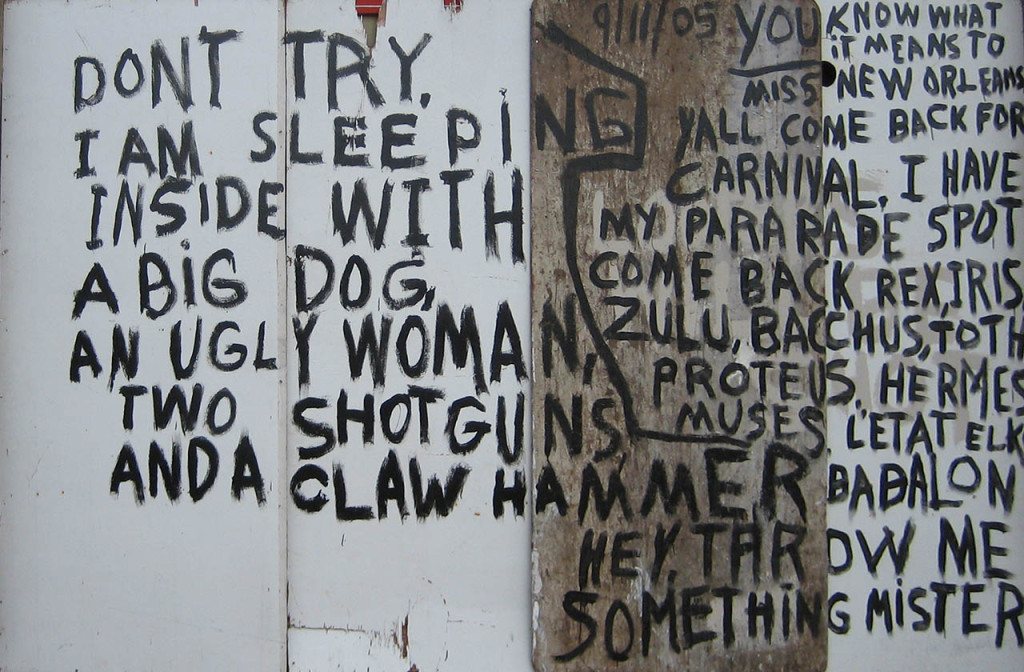 DONT TRY.
I AM SLEEPING
INSIDE WITH
A BIG DOG,
AN UGLY WOMAN,
TWO SHOTGUNS,
AND A CLAW HAMMER
9/11/05 YOU KNOW WHAT
IT MEANS TO
MISS NEW ORLEANS
YALL COME BACK FOR
CARNIVAL. I HAVE
MY PARARADE SPOT
COME BACK REX, IRIS
ZULU, BACCHUS, TOTH
PROTEUS. HERMES
MUSES L'ETAT ELK
BABALON
HEY, THROW ME
SOMETHING MISTER